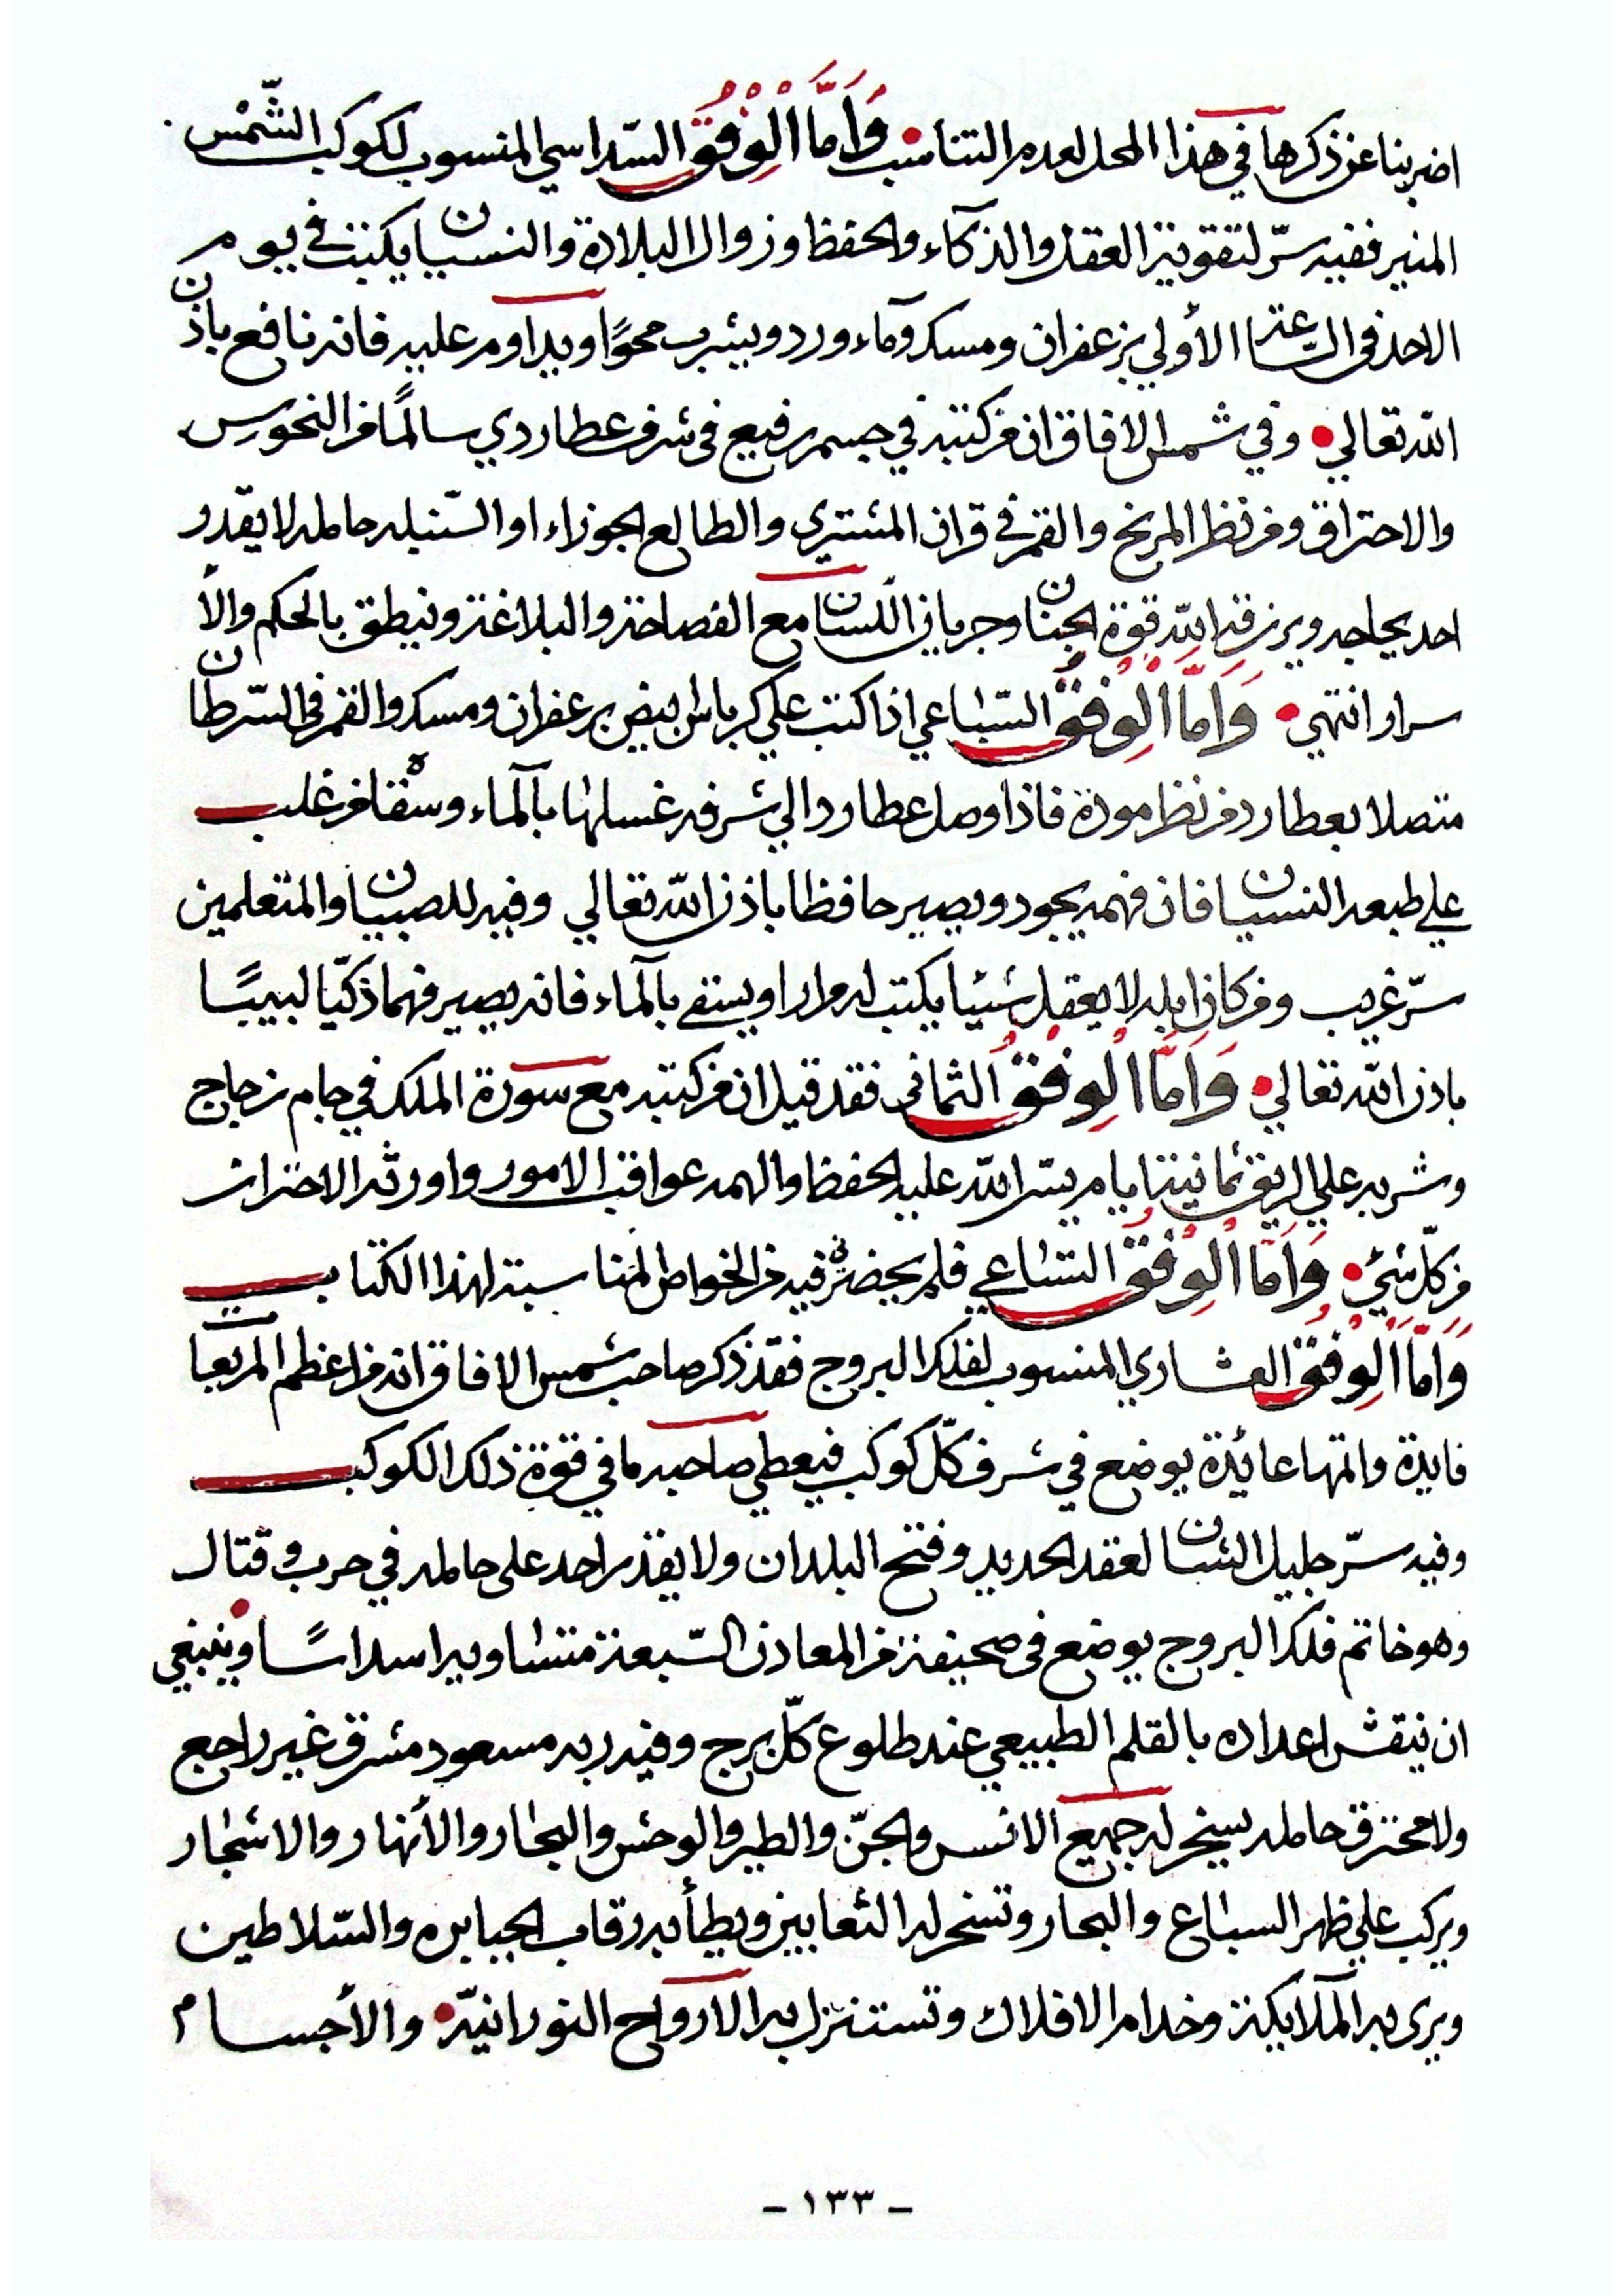 اضربنا عن ذكرها في هذا المحل لعدم التناسب وَأَمَّا الْوِفْقُ السّداسي المنسوب لكوكب الشّمْس
المنير ففيه سرّ لتقوية العقل والذكآء والحفظ وزوال البلادة والنسيان يكتب في يوم
الاحد في السّاعة الأولي بزعفران ومسك ومآء ورد ويشرب محوًا ويداوم عليه فانه نافع باذن
الله تعالي وفي شمس الافاق ان من كتبه في جسم رفيع في شرف عطاردي سالمًا من النحوس
والاحتراق ومن نظر المريخ والقمر في قران المشتري والطالع الجوزاء او السّنبله حامله لا يقدر
احد يحاجه ويرزقه الله قوة الجنان وجريان اللّسان مع الفصاحة والبلاغة وينطق بالحكم والأ
سرار انتهي وَامَّا الْوِفْقُ السّباعي اذا كتب علي كرباس ابيض بزعفران ومسك والقمر في السّرطان
متصلا بعطارد من نظر مودة فاذا وصل عطارد الي شرفه غسلها بالمآء وسقاه من غلب
علي طبعه النسيان فان فهمه يجود ويصير حافظا باذن الله تعالي وفيه للصبيان والمتعلمين
سرّ غريب ومن كان ابله لا يعقل شيئا يكتب له مرارا ويسقي بالمآء فانه يصير فهما ذكيّا لبيبًا
باذن الله تعالي وَامَّا الْوِفْقُ الثماني فقد قيل ان من كتبه مع سورة الملك في جام زجاج
وشربه علي الريق ثمانية ايام يسّر الله عليه الحفظ والهمه عواقب الامور واورثه الاحتراز
من كلّ شيئ وَامَّا الْوِفْقُ التساعي فلم يحضرني فيه من الخواص المناسبة لهذا الكتاب
وَامَّا الْوِفْقُ العشاري المنسوب لفلك البروج فقد ذكر صاحب شمس الافاق انه من اعظم المربعات
فايدة واتمها عائدة يوضع في شرف كلّ كوكب فيعطي صاحبه ما في قوة ذلك الكوكب
وفيه سرّ جليل الشان لعقد الحديد وفتح البلدان ولا يقدر احد على حامله في حرب وقتال
وهو خاتم فلك البروج يوضع في صحيفة من المعادن السّبعة متساويه اسداسًا وينبغي
ان ينقش اعداده بالقلم الطبيعي عند طلوع كلّ برج وفيه ربه مسعود مشرق غير راجع
ولا محترق حامله يسخر له جميع الانس والجنّ والطير والوحش والبحار والأنهار والاشجار
ويركب علي ظهر السباع والبحار وتسخر له الثعابين ويطأ به رقاب الجبابره والسّلاطين
ويرى به الملآيكة وخدام الافلاك وتستنزل به الارواح النورانيّه والأجسام
- ١٣٣ -